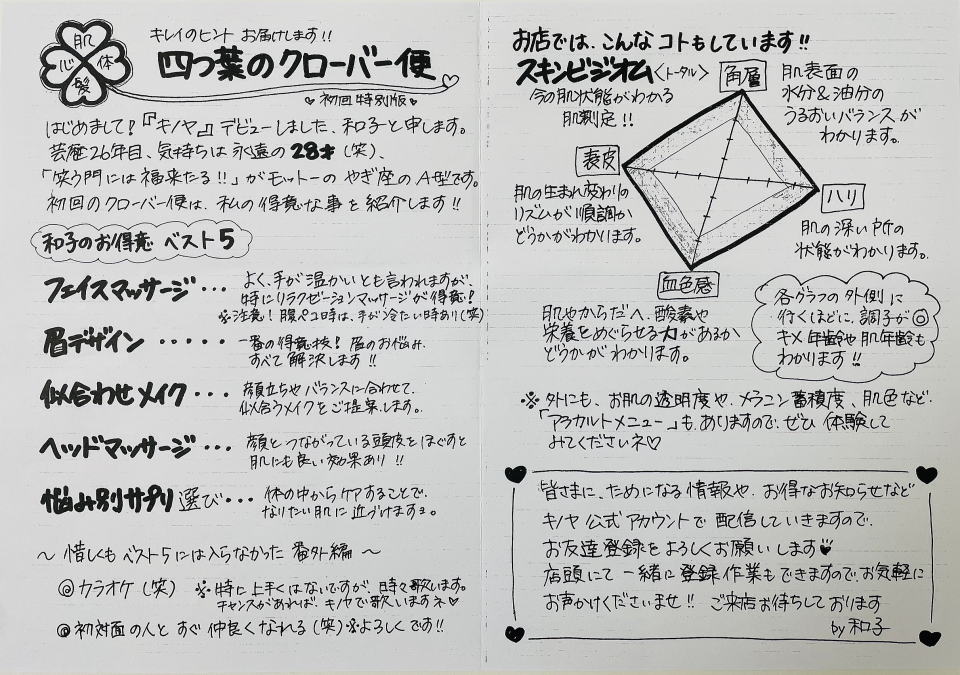 肌
心
体
髪
キレイのヒント お届けします!!
四つ葉のクローバー便
♥初回特別版♥
はじめまして!『キノヤ』デビューしました、和子と申します。
芸歴26年目、気持ちは永遠の28才(笑)、
「笑う門には福来たる!!」がモットーの やぎ座のA型です。
初回のクローバー便は、私の得意な事を紹介します!!
和子のお得意 ベスト5
フェイスマッサージ・・・
よく、手が温かいとも言われますが、
特にリラクゼーションマッサージが得意!
※注意!腹ペコ時は、手が冷たい時あり(笑)
眉デザイン・・・・・
一番の得意技!眉のお悩み、
すべて解決します!!
似合わせメイク・・・
顔立ちやバランスに合わせて、
似合うメイクをご提案します。
ヘッドマッサージ・・・
顔とつながっている頭皮をほぐすと
肌にも良い効果あり!!
悩み別サプリ選び・・・
体の中からケアすることで、
なりたい肌に近づけますョ。
〜 惜しくもベスト5には入らなかった 番外編 〜
◎カラオケ(笑)
※特に上手くはないですが、時々歌います。
チャンスがあれば、キノヤで歌いますネ♡
◎初対面の人と すぐ仲良くなれる(笑)※よろしくです!!
お店では、こんなコトもしています!!
スキンビジオム〈トータル〉
今の肌状態がわかる
肌測定!!
角層
肌表面の
水分&油分の
うるおいバランスが
わかります。
表皮
肌の生まれ変わりの
リズムが順調か
どうかがわかります。
ハリ
肌の深い所の
状態がわかります。
血色感
肌やからだへ、酸素や
栄養をめぐらせる力があるか
どうかがわかります。
各グラフの外側に
行くほどに、調子が◎
キメ年齢や肌年齢も
わかります!!
※外にも、お肌の透明度や、メラニン蓄積度、肌色など、
「アラカルトメニュー」も、ありますので、ぜひ体験して
みてくださいネ♡
皆さまに、ためになる情報や、お得なお知らせなど
キノヤ公式アカウントで配信していきますので、
お友達登録をよろしくお願いします♥
店頭にて一緒に登録作業もできますので、お気軽に
お声かけくださいませ!! ご来店お待ちしております
by 和子